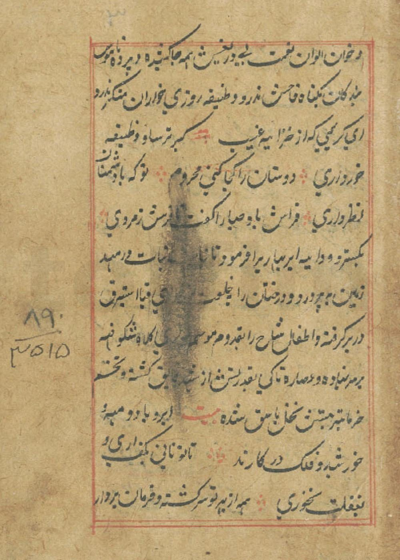 و خوان الوان نعمت بی دریغش همه جا کشیده و پرده ناموس
بندگان بگناه فاحش ندرد و وظیفه روزی خواران بمنکر نبرد
ای کریمی که از خزانه غیب گبر و ترسا وظیفه
خور داری دوستان را کجا کنی محروم تو که با دشمنان
نظر داری فراش باد صبا را گفت تا فرش زمردی
بگسترد و دایه ابر بهار را فرمود تا نبات در مهد
زمین بپرورد و درختان را بخلعت قبا استبرق
در بر گرفته و اطفال شاخ را بقدوم موسم کلاه شکوفه
بر سر نهاده و عصاره تاکی بقدرتش از شهد فایق گشته و تخم
خرما بتربیتش نخل باسق شده بیت ابر و باد و مه و
خورشید و فلک در کارند تا تو نانی بکف آری و
بغفلت نخوری همه از بهر تو سرگشته و فرمان بردار
۸۹۰
۳۵۱۵